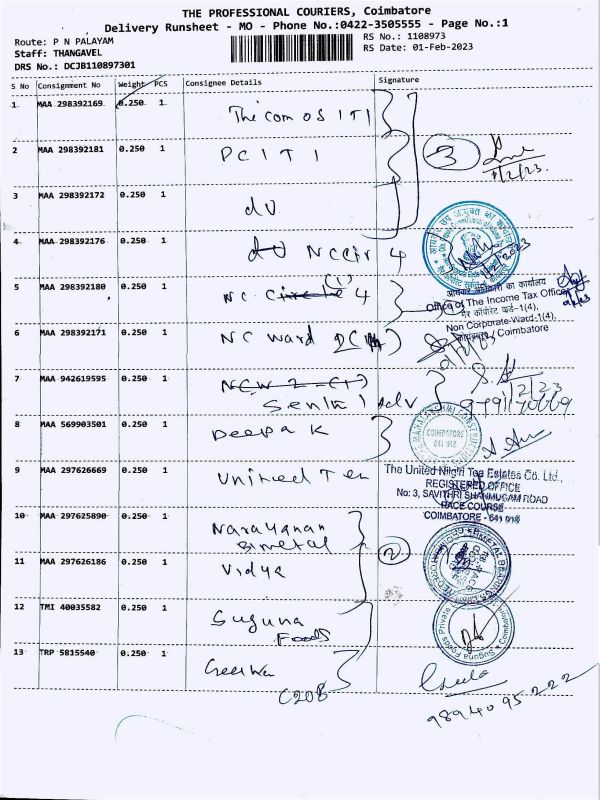 THE PROFESSIONAL COURIERS, Coimbatore
Delivery Runsheet - MO - Phone No.:0422-3505555 - Page No.:1
Route: P N PALAYAM
Staff: THANGAVEL
DRS No.: DCJB110897301
RS No.: 1108973
RS Date: 01-Feb-2023
S No Consignment No Weight PCS Consignee Details Signature
1 MAA 298392169 0.250 1 The com os ITI
2 MAA 298392181 0.250 1 PC ITI
3 3
1/2/23
3 MAA 298392172 0.250 1 dv
4 MAA 298392176 0.250 1 NC Cir 4
5 MAA 298392180 0.250 1 NC Circle (1) 4
आयकर अधिकारी का कार्यालय
Office of The Income Tax Officer
गैर कॉर्पोरेट वार्ड-1(4),
Non Corporate-Ward-1(4),
कोयम्बत्तूर / Coimbatore
6 MAA 298392171 0.250 1 NC ward 2(
7 MAA 942619595 0.250 1 NCW 2 (1)
Senthil Adv
8 MAA 569903501 0.250 1 Deepa K
COIMBATORE
641 018
9 MAA 297626669 0.250 1 United Tea
The United Nilgiri Tea Estates Co. Ltd.,
REGISTERED OFFICE
No: 3, SAVITHRI SHANMUGAM ROAD
RACE COURSE
COIMBATORE - 641 018
10 MAA 297625890 0.250 1 Narayanan
Bimetal
2
11 MAA 297626186 0.250 1 Vidya
BIMETAL BEARINGS
12 TMI 40035582 0.250 1 Suguna
Foods
Suguna Foods Private
Coimbatore
13 TRP 5815540 0.250 1 Geetha
C20B
Geetha
9894095222